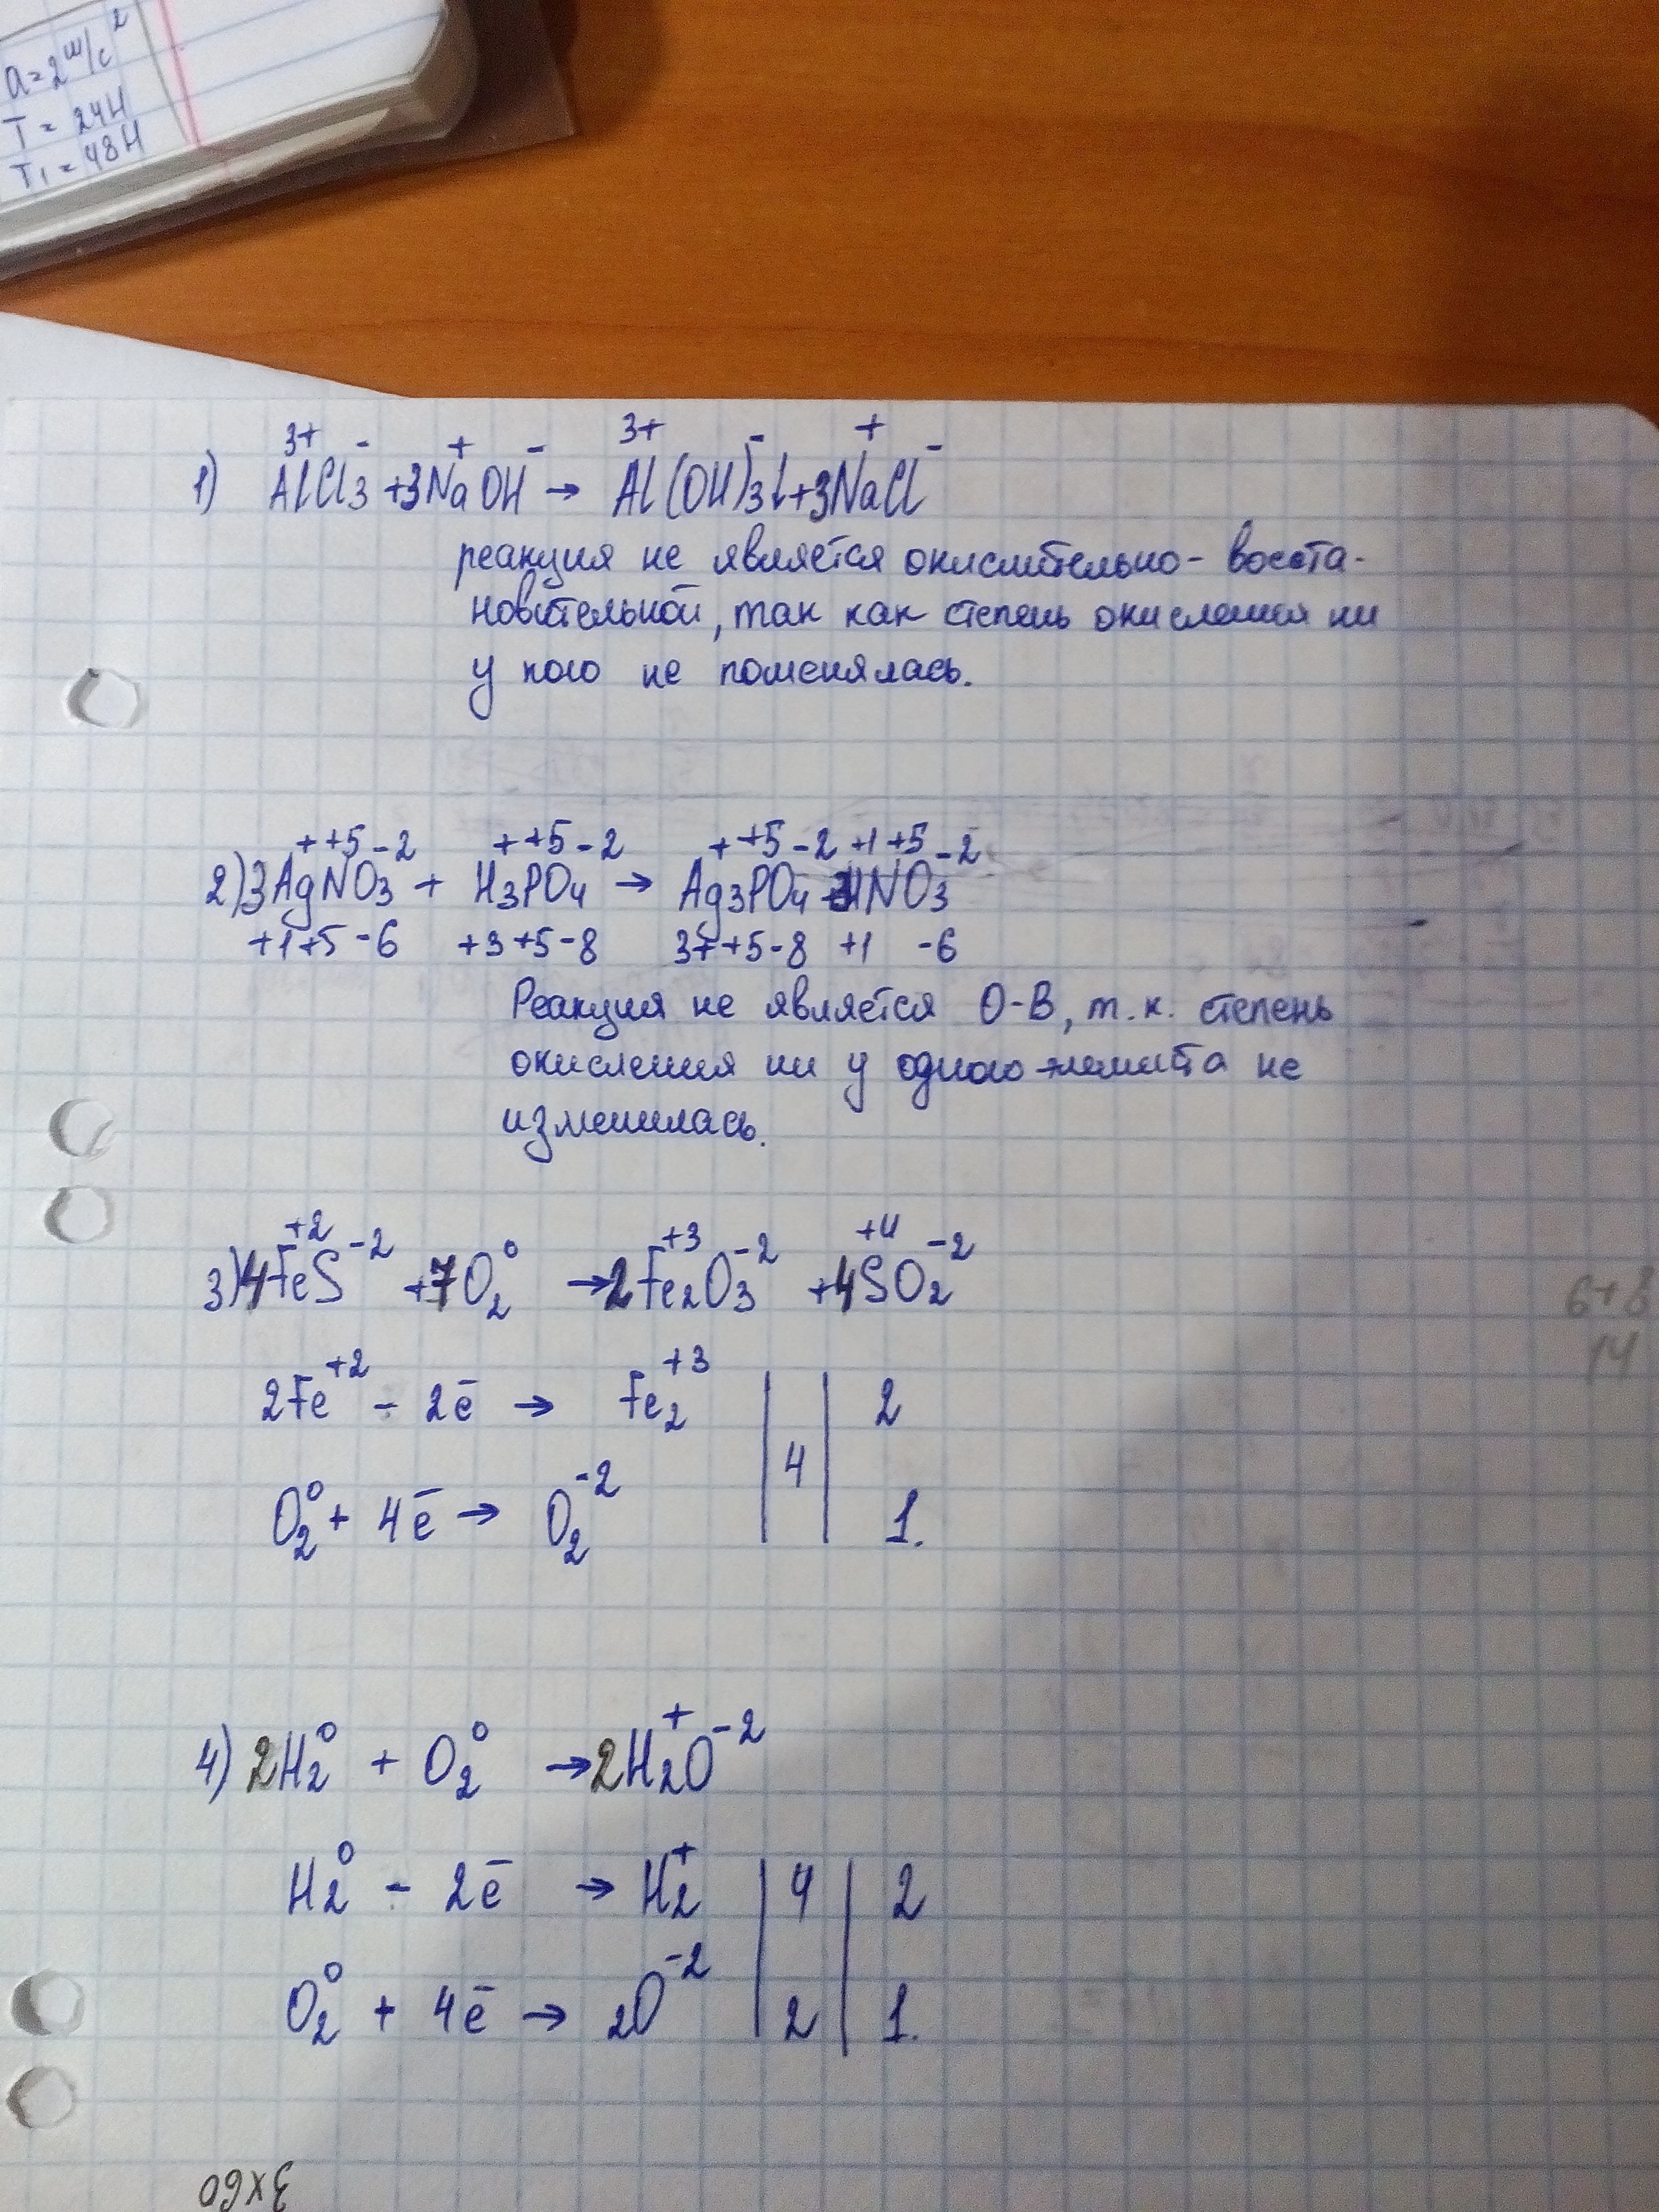 a = 2 м/с²
T = 24H
T₁ = 48H
3+ - + - 3+ - + -
1) AlCl₃ + 3NaOH → Al(OH)₃↓ + 3NaCl
реакция не является окислительно-восста-
новительной, так как степень окисления ни
у кого не поменялась.
+ +5 -2 + +5 -2 + +5 -2 +1 +5 -2
2) 3AgNO₃ + H₃PO₄ → Ag₃PO₄ + 3HNO₃
+1+5-6 +3+5-8 3++5-8 +1 -6
Реакция не является О-В, т.к. степень
окисления ни у одного элемента не
изменилась.
+2 -2 0 +3 -2 +4 -2
3) 4FeS + 7O₂ → 2Fe₂O₃ + 4SO₂
6+8
14
+2 +3
2Fe - 2ē → Fe₂ | | 2
4
0 -2
O₂ + 4ē → O₂ | | 1.
0 0 + -2
4) 2H₂ + O₂ → 2H₂O
0 +
H₂ - 2ē → H₂ | 4 | 2
0 -2
O₂ + 4ē → 2O | 2 | 1.
3x60